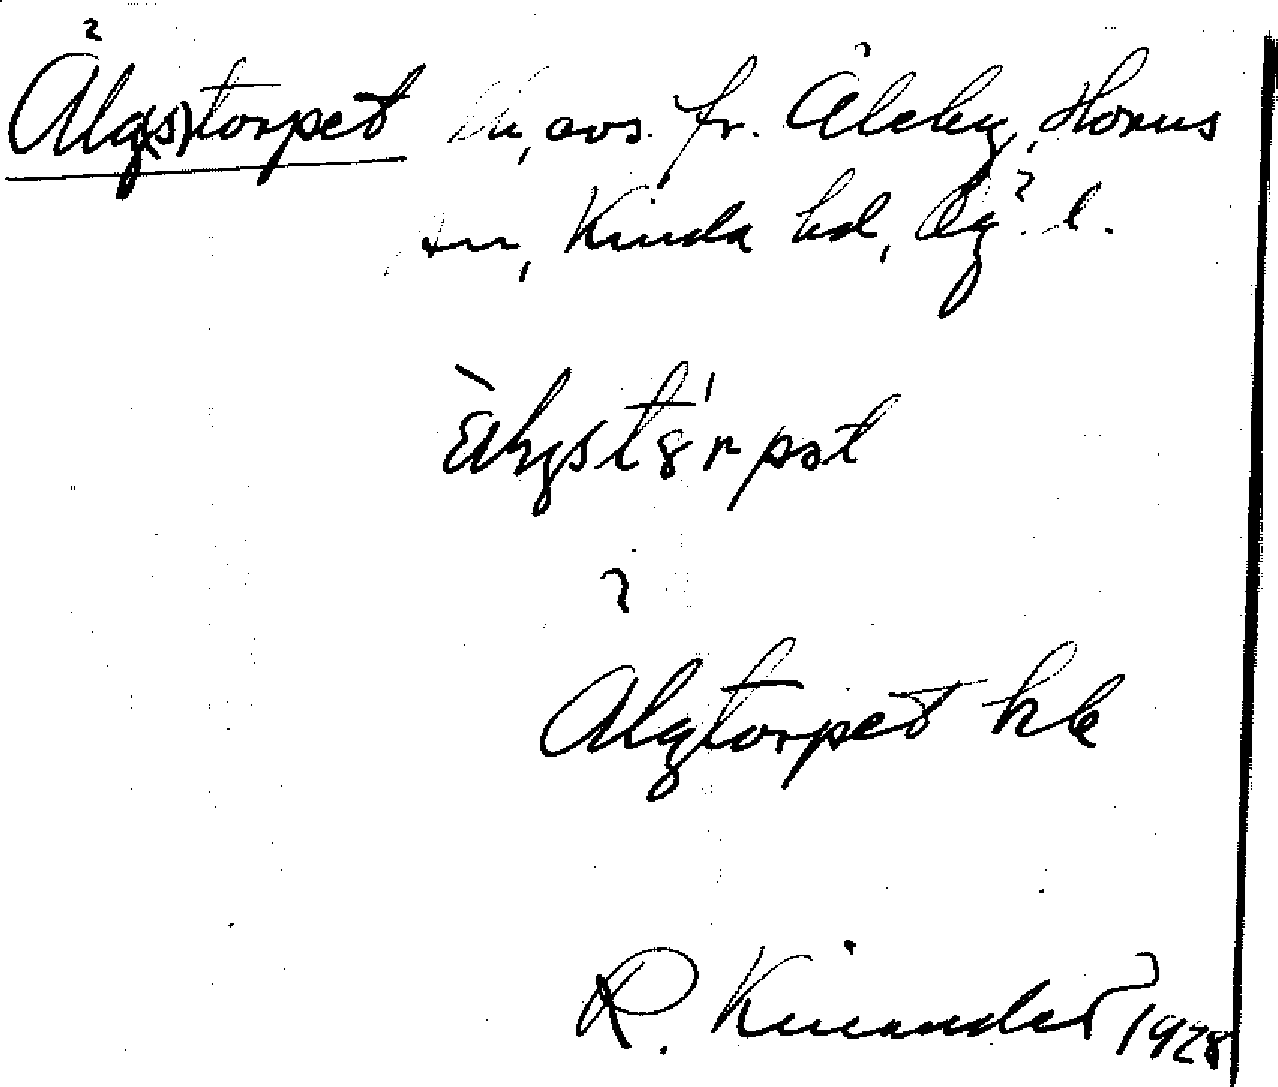 Älg(s)torpet lh, avs. fr. Åleby, Horns
sn, Kinda hd, Ög. l.
Älgtorpet hk
R. Kinander 1928